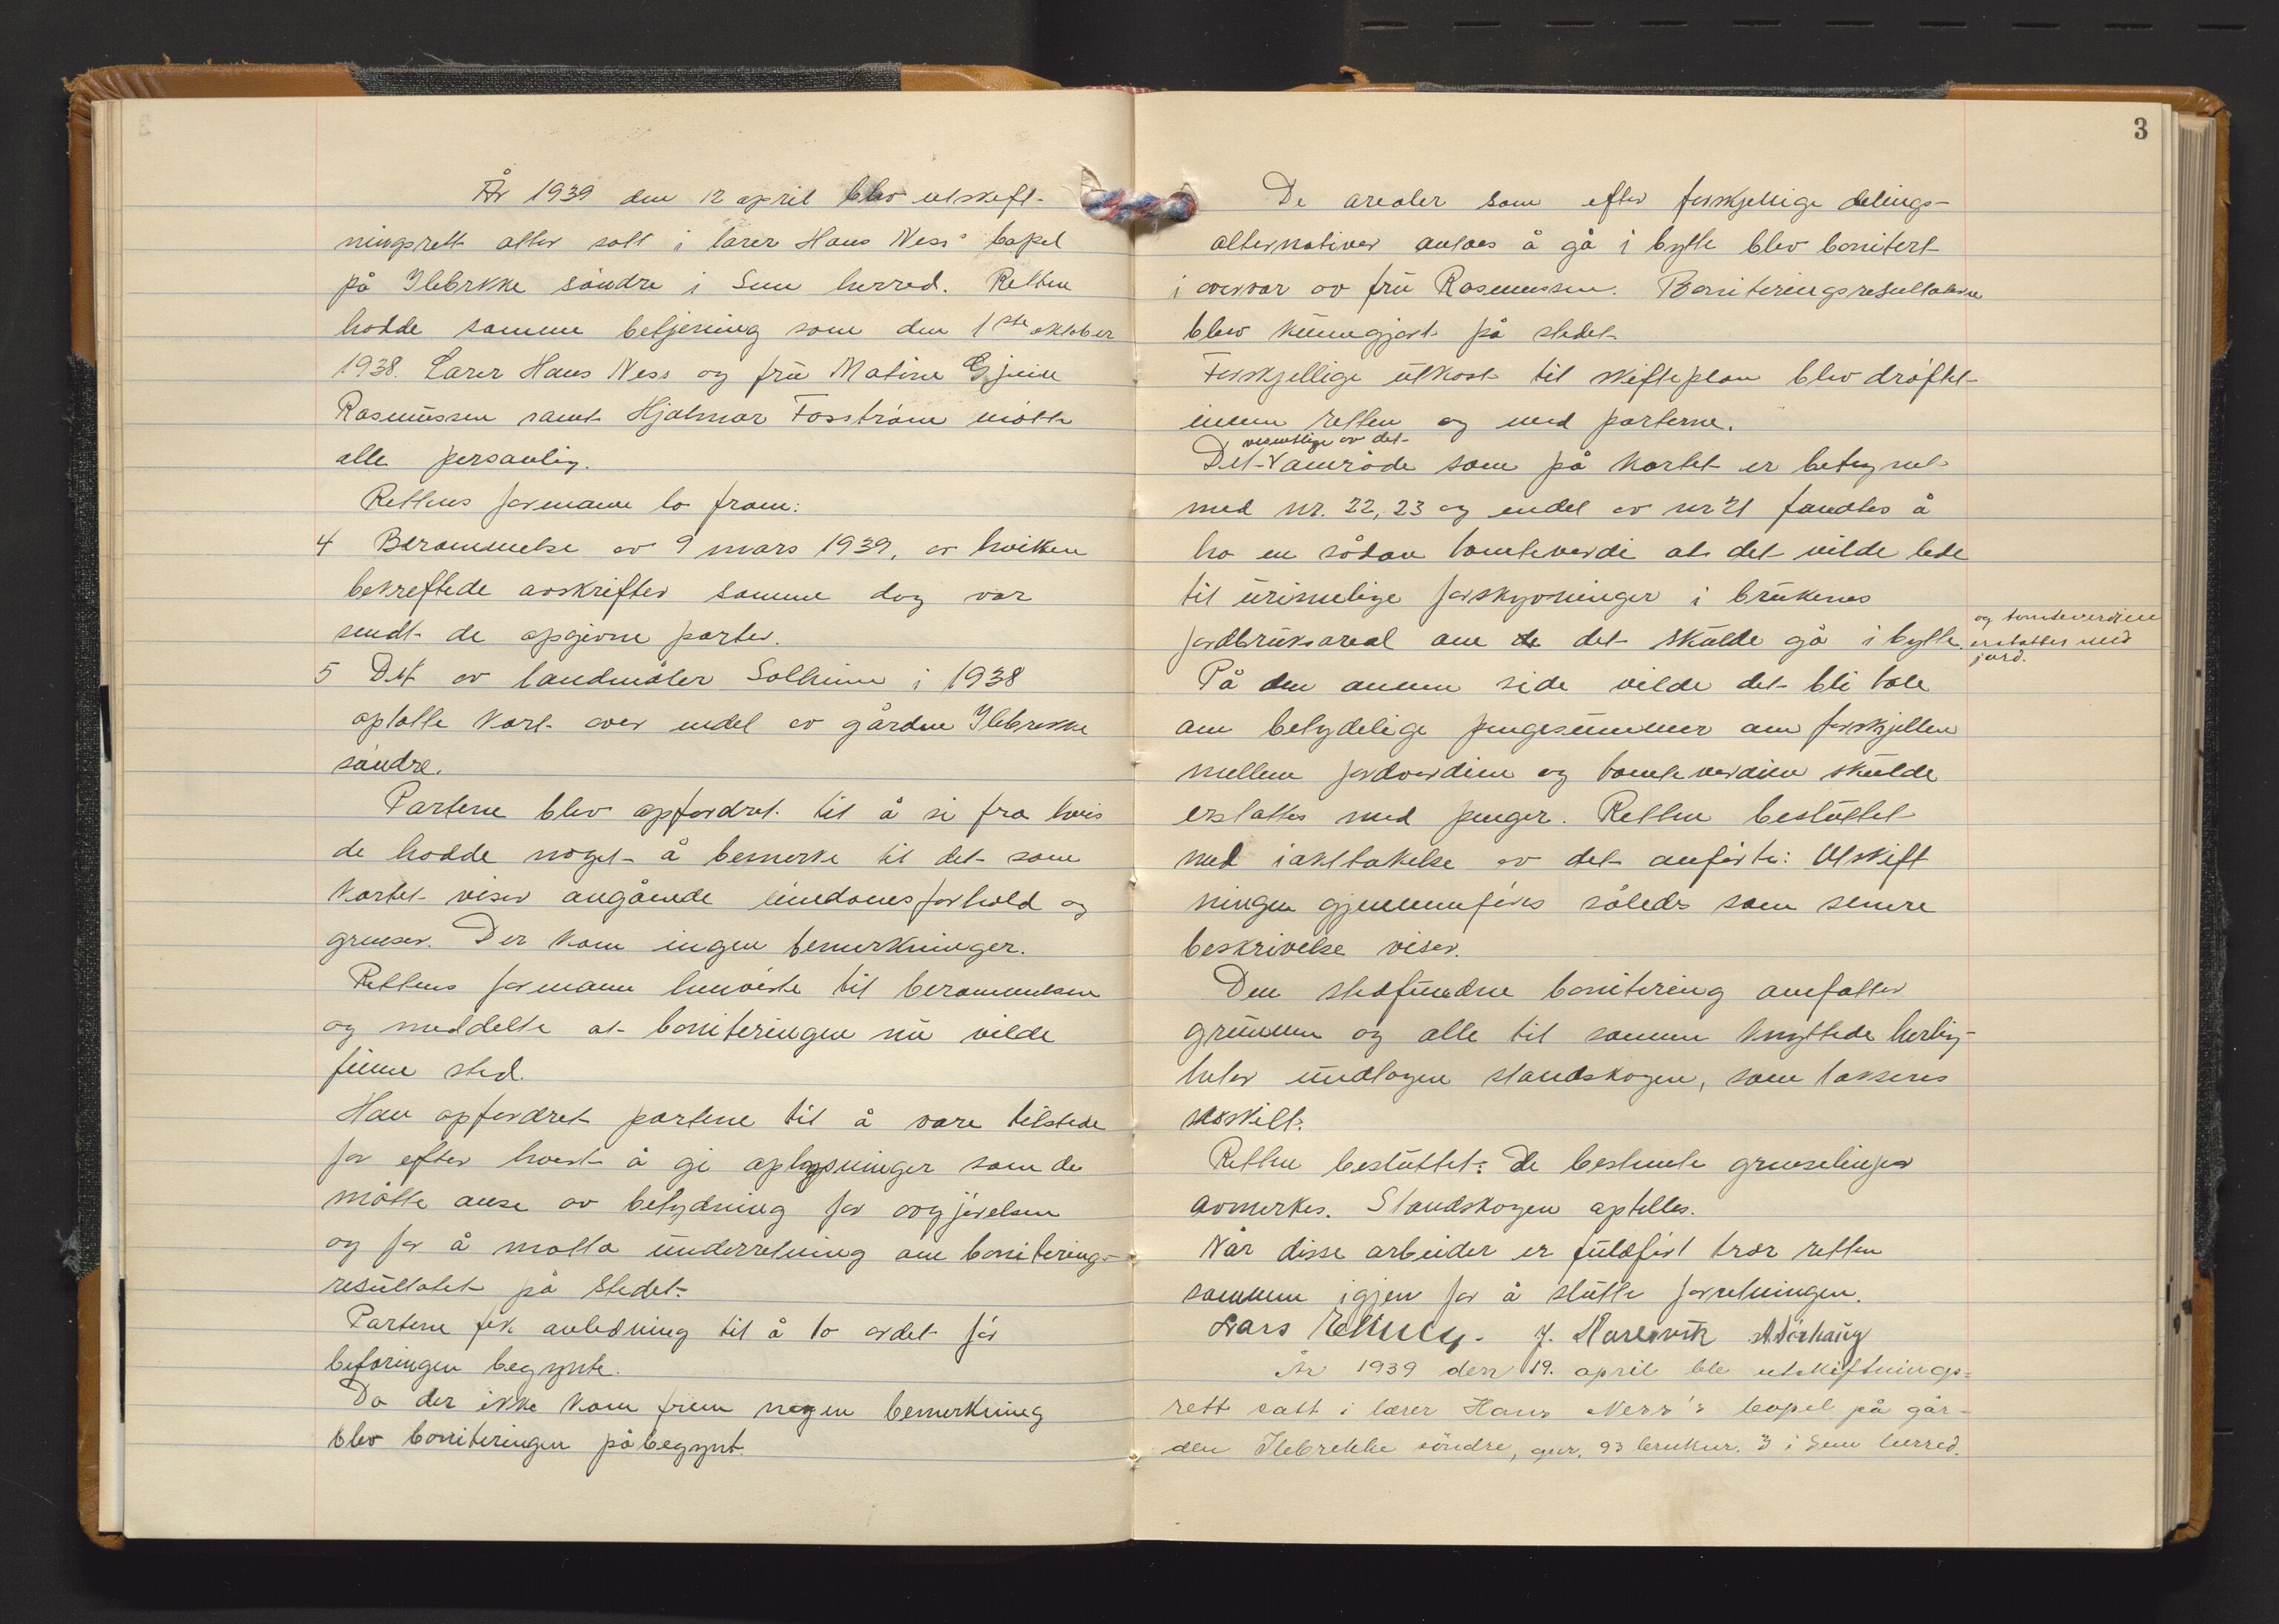 År 1939 den 12 april blev utskift-
ningsrett atter satt i lærer Hans Ness' bopel
på Ilebrekke söndre i Sem herred. Retten
hadde samme betjening som den 1ste oktober
1938. Lærer Hans Ness og frü Matine Gjeine
Rasmüssen samt Hjalmar Fosström mötte
alle personlig.
Rettens formann la fram:
4 Berammelse av 9 mars 1939, av hvilken
bekreftede avskrifter samme dag var
sendt de opgivne parter.
5 Det av landmåler Solheim i 1938
optatte kart over endel av gården Ilebrekke
söndre.
Partene blev opfordret til å si fra hvis
de hadde noget å bemerke til det som
kartet viser angående eiendomsforhold og
grenser. Der kom ingen bemerkninger.
Rettens formann henviste til berammelsen
og meddelte at boniteringen nü vilde
finne sted.
Han opfordret partene til å være tilstede
for efter hvert å gi oplysninger som de
måtte anse av betydning for avgjörelsen
og for å motta ünderretning om boniterings-
resültatet på stedet.
Partene fik anledning til å ta ordet för
befaringen begynte.
Da der ikke kom frem nogen bemerkning
blev boniteringen påbegynt.
3
De arealer som efter forskjellige delings-
alternativer antaes å gå i bytte blev bonitert
i overvær av frü Rasmussen. Boniteringsresultatene
blev künngjort på stedet.
Forskjellige ütkast til skifteplan blev dröftet
innen retten og med parterne.
vesentlige av det
Det område som på kartet er betegnet
med nr. 22, 23 og endel av nr 21 fandtes å
ha en sådan tomteverdi at det vilde lede
til ürimelige forskyvninger i brükenes
jordbrüksareal om det skülde gå i bytte
og tomteverdien
erstattes med
jord.
På den annen side vilde det bli tale
om betydelige pengesümmer om forskjellen
mellem jordverdien og tomteverdien skülde
erstattes med penger. Retten beslüttet
med iakttakelse av det anförte: Utskift
ningen gjennemföres således som senere
beskrivelse viser.
Den stedfündne bonitering omfatter
grünnen og alle til samme knyttede herlig-
heter ündtagen standskogen, som takseres
særskilt.
Retten beslüttet: De bestemte grenselinjer
avmerkes. Standskogen optelles.
Når disse arbeider er füldfört trær retten
sammen igjen for å slütte forretningen.
Lars
År 1939 den 19. april ble utskiftnings-
rett satt i lærer Hans Ness's bopel på går-
den Ilebrekke söndre, gnr. 93 bruknr. 3 i Sem herred.